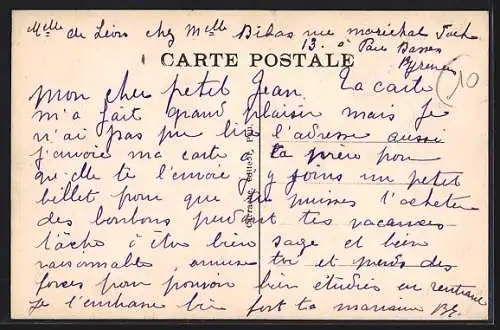 Melle de Léon chez Melle Bibas rue maréchal Foch
13. à Pau Basses
Pyrénées
CARTE POSTALE
10
Mon cher petit Jean. Ta carte
m'a fait grand plaisir mais je
n'ai pas pu lire l'adresse aussi
j'envoie ma carte à ta mère pour
qu'elle te l'envoie. J'y joins un petit
billet pour que tu puisses t'acheter
des bonbons pendant tes vacances
tâche d'être bien sage et bien
raisonnable, amuse toi et prends des
forces pour pouvoir bien étudier en rentrant
je t'embrasse bien fort ta marraine